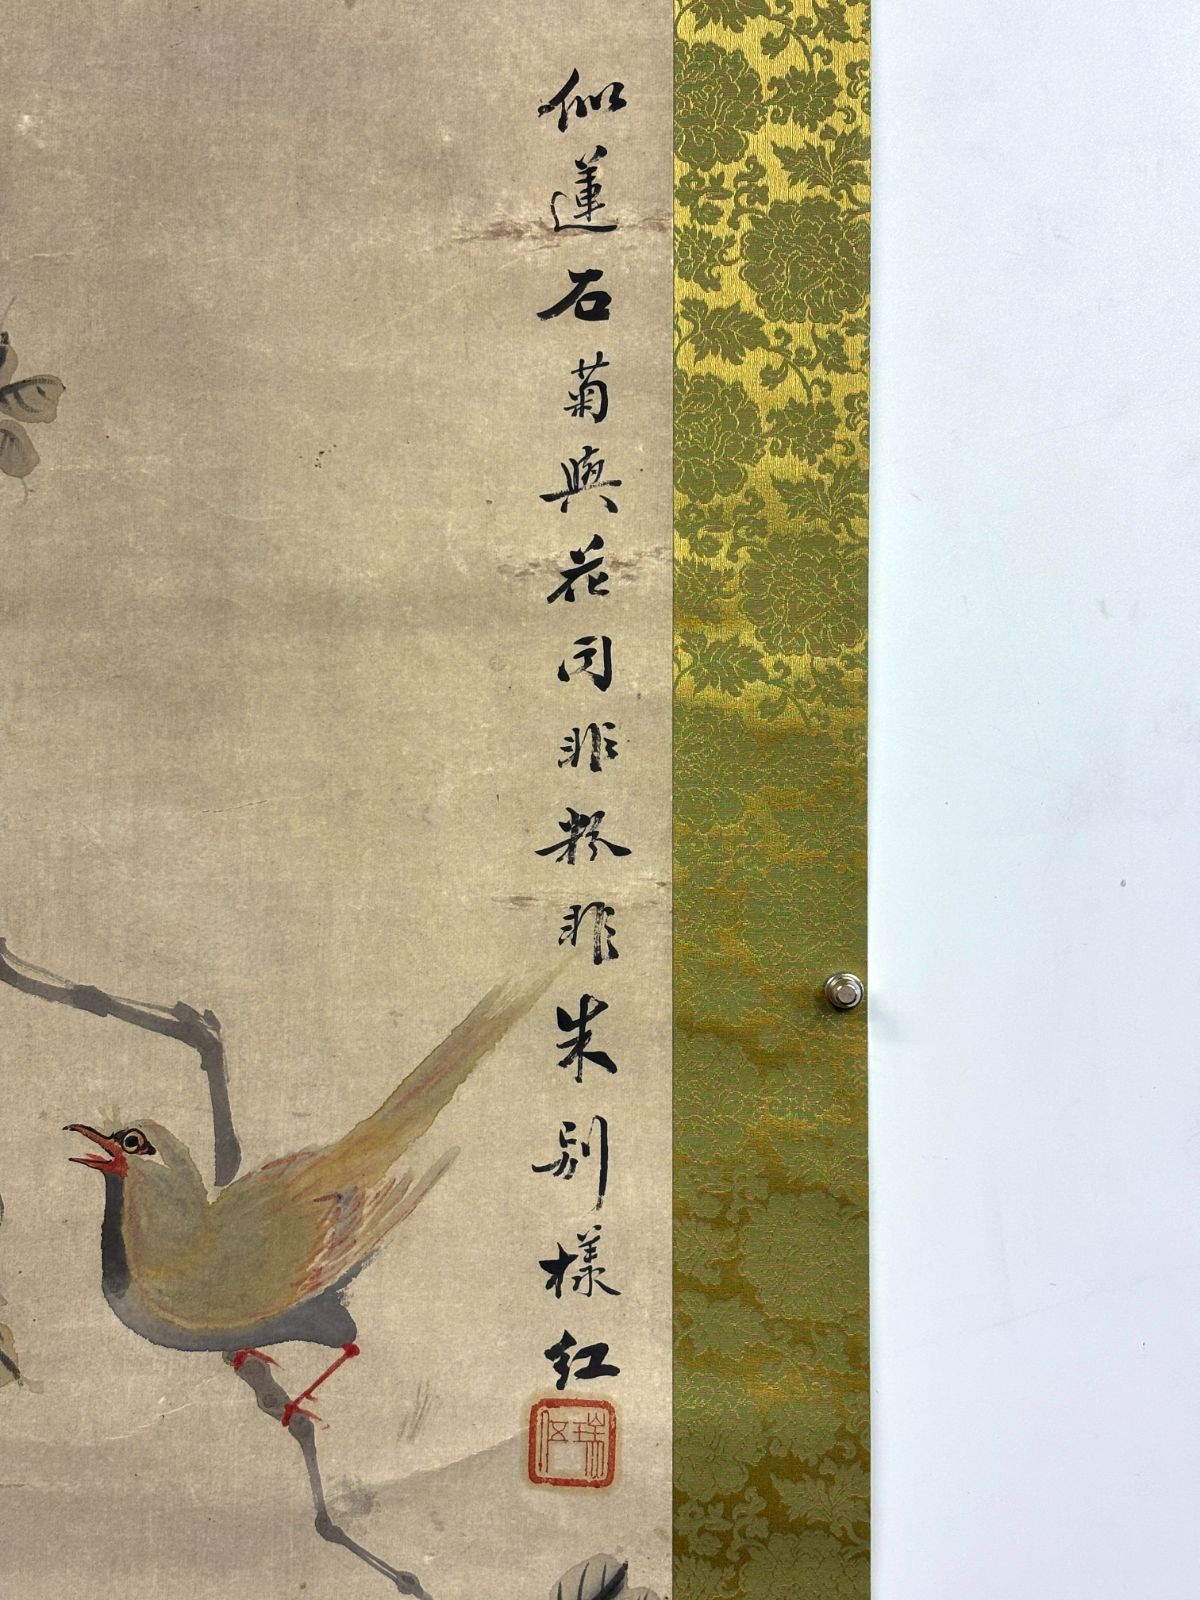 似蓮石菊與花同非粉非朱別樣紅